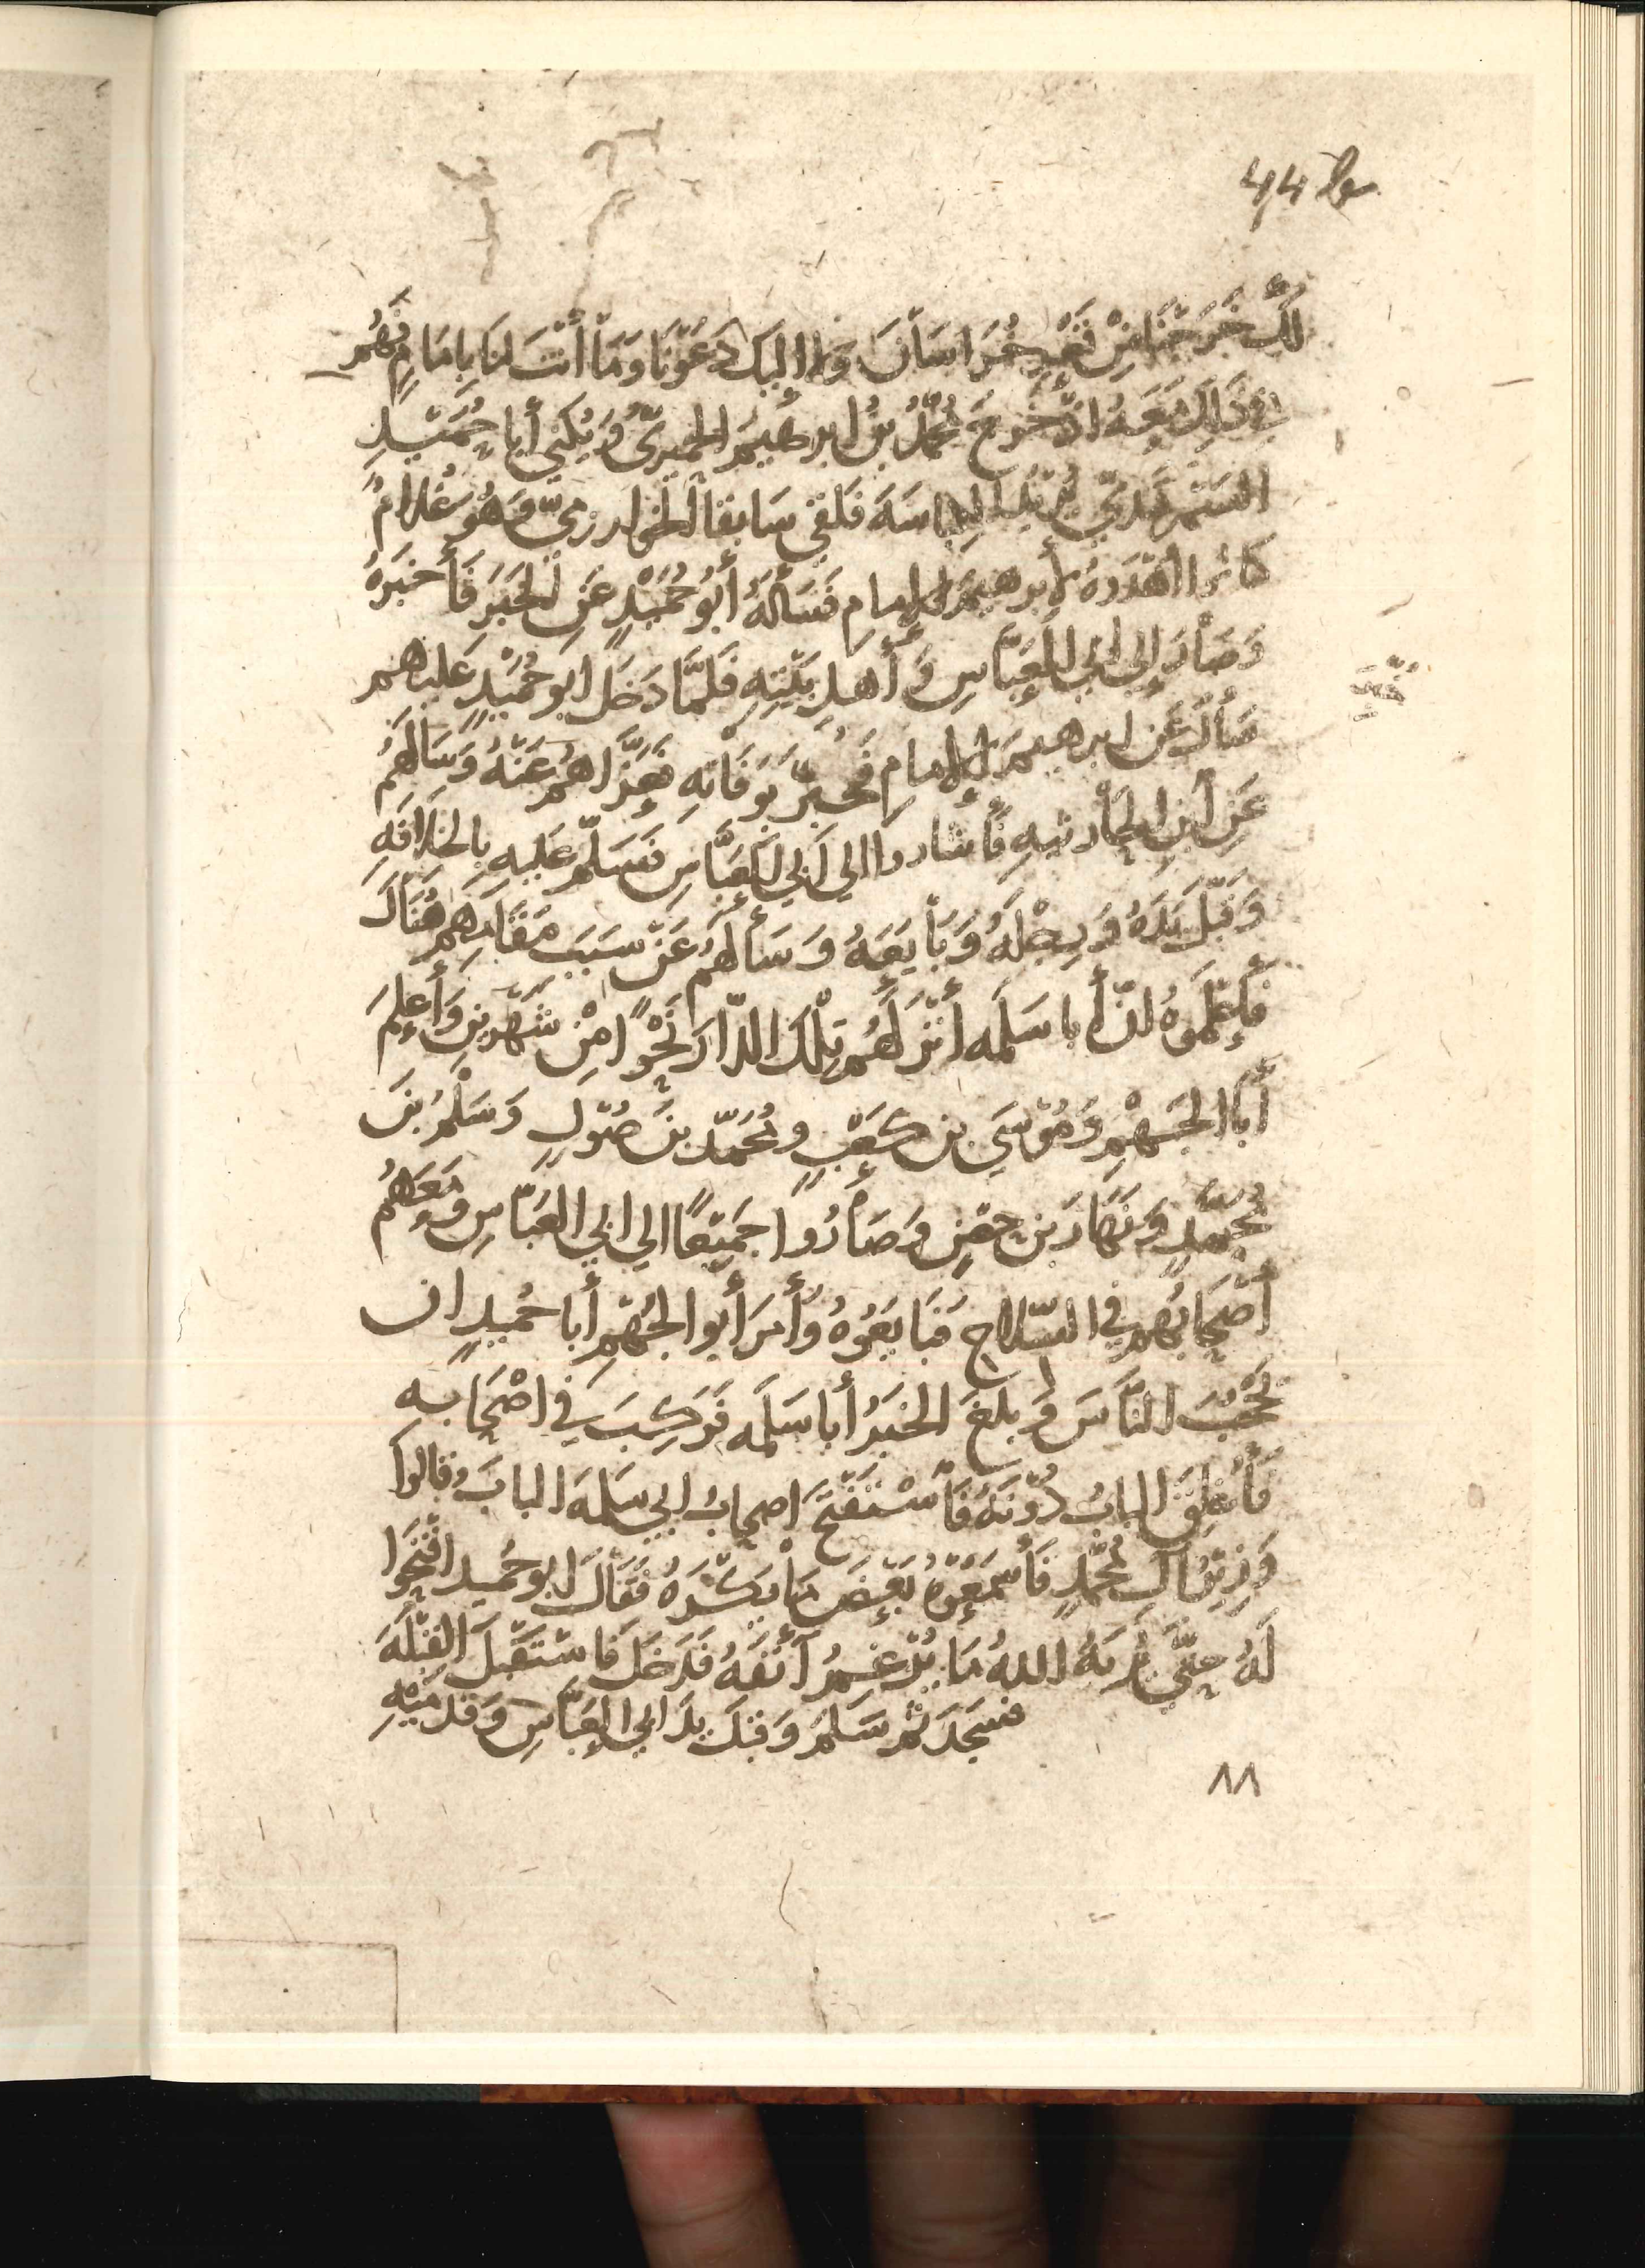 44
لك خَرَجْنَا مِنْ قَعْرِ خُرَاسَانَ وَلا إليك دَعَوْنَا وَمَا أنْتَ لنَا بِإمَامٍ فَهُم
في ذَلِكَ مَعَهُ اذ خَرَجَ مُحَمَّدُ بنُ ابرهيمَ الحميريّ وَيُكنَي أبا حُمَيْدٍ
السَمَرقَنديّ يُريدُ الكناسَةَ فَلَقِيَ سَابِقا الخوارزميّ وَهُو غُلامٌ
كانوا اهْدَوهُ لأبرهيمَ الإمامِ فَسَألَهُ أبُو حُمَيْدٍ عَنِ الخَبَرَ فَأخبَرهُ
وَصَارَ إلي ابي العَبَّاسِ وَأهلِ بَيْتِهِ فَلَمَّا دَخَلَ ابو حُمَيْدٍ عَليهم
سَألَ عَن ابرهيمَ الإمامِ فَخُبِّرَ بوَفَاتِهِ فَعَزَّاهُم عَنْهُ وَسَالَهُمُ
عَنِ ابنِ الحَارثيهِ فَأشاروا الي أبي العَبَّاسِ فَسَلَّمَ عَليهِ بِالخلافَهِ
وَقَبَّلَ يَدَهُ وَرِجْلَهُ وَبَايَعَهُ وَسَألَهُم عَنْ سَبَبِ مَقَامِهِم هُنَاكَ
فَأعْلَمَوهُ انّ أبا سَلَمَه أنْزَلَهُم تِلْكَ الدّارَ نَحْواً مِنْ شَهْرينِ وَأعلَمَ
أبَا الجَهْمِ وَمُوْسَي بن كَعْبٍ ومُحَمّد بنَ صُوْلٍ وَسَلْمَ بنَ
مُحَمّدٍ وَنَهَارَ بن حِصْنٍ وَصَارُوا جَمَيْعًا الي ابي العَبّاسِ وَمَعَهُم
أصْحَابُهُم في السّلاحِ فَبَايَعَوُهُ وَأمَرَ أبو الجَهْمِ أبا حُميدٍ ان
يَحْجُبَ النَّاسَ وَبلَغَ الخبَرُ أبا سَلَمَه فَرَكِبَ في اصْحَابه
فَأُغلِقَ البابُ دُوْنَهُ فَأسْتَفْتَحَ اصحابُ ابي سَلمَه البابَ وَقالوا
وَزِيْرُ الِ مُحَمَّدٍ فَأسْمَعَوْهُ بَعْضَ مَا يَكْرَهُ فَقَالَ ابو حُمَيد افتَحَوا
لَهُ حتَّي يُرِيَهُ اللهُ مَا يُرْغِمُ أنْفَهُ فَدَخَلَ فَاسْتَقْبَلَ القِبْلَهَ
فسَجَدَ ثُم سَلَمَ وَقبّلَ يدَ ابي العَبَّاسِ وَقدَمَيْهِ
٨٨